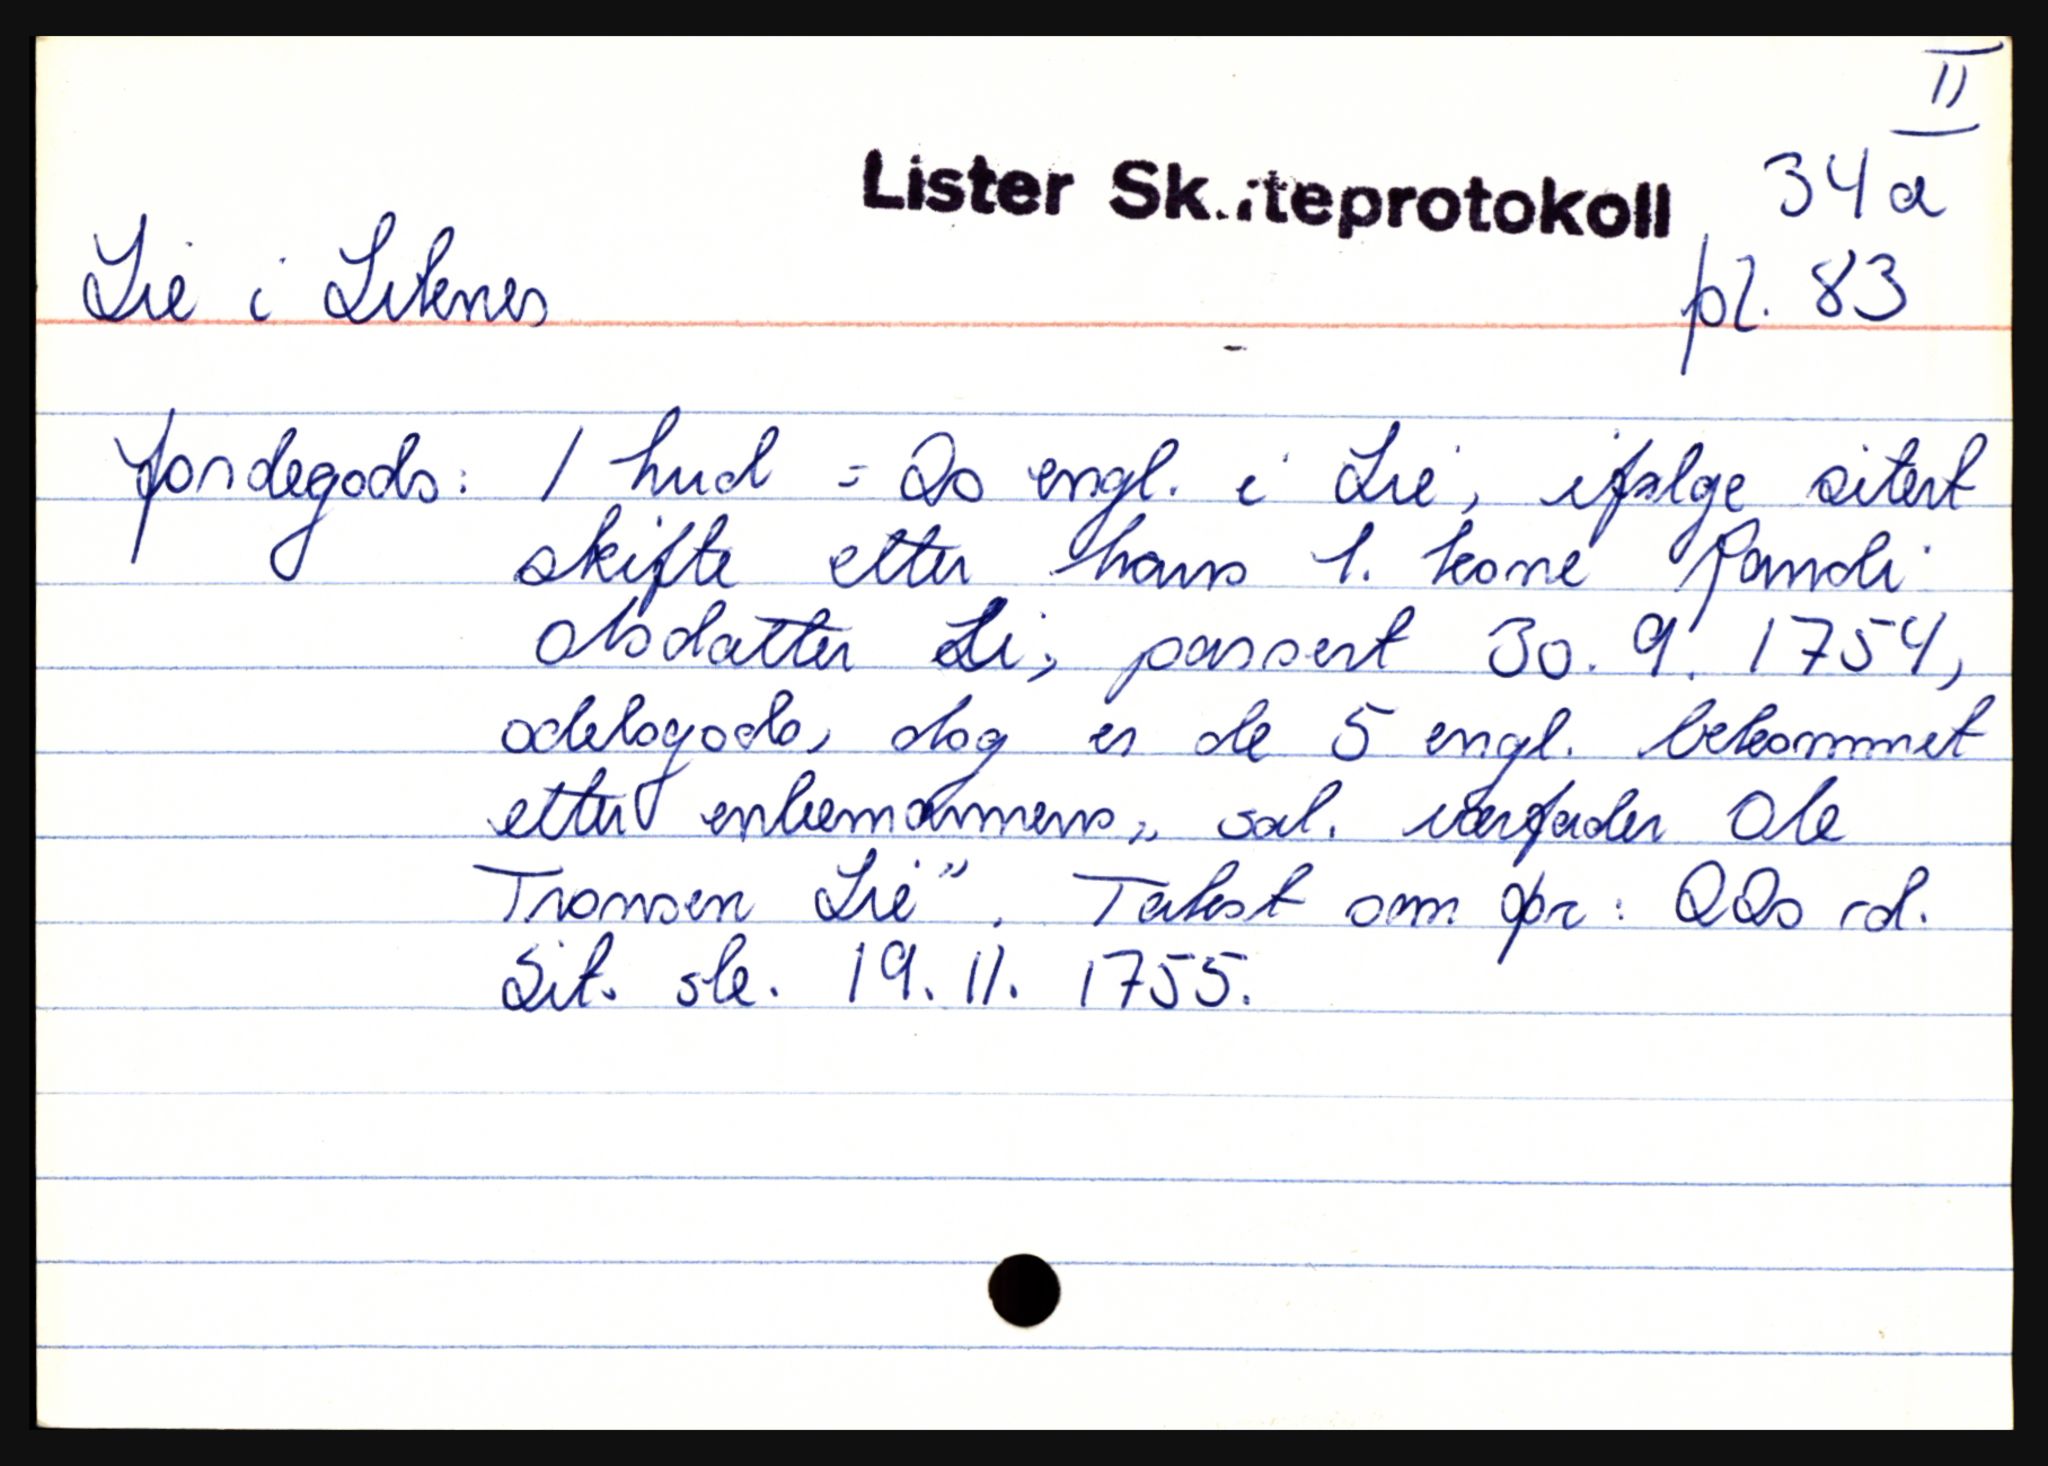 II
Lister Sk..iteprotokoll 34a
Lie i Liknes pl. 83
Jordegods: 1 hud = 20 engl. i Lie, ifølge sitert
skifte etter hans 1. kone Randi
Olsdatter Li, passert 30.9.1754,
odelsgods, dog er de 5 engl. bekommet
etter enkemannens „ sal. værfader Ole
Tronsen Lie". Takst som før: 220 rd.
Sit. sk. 19.11.1755.